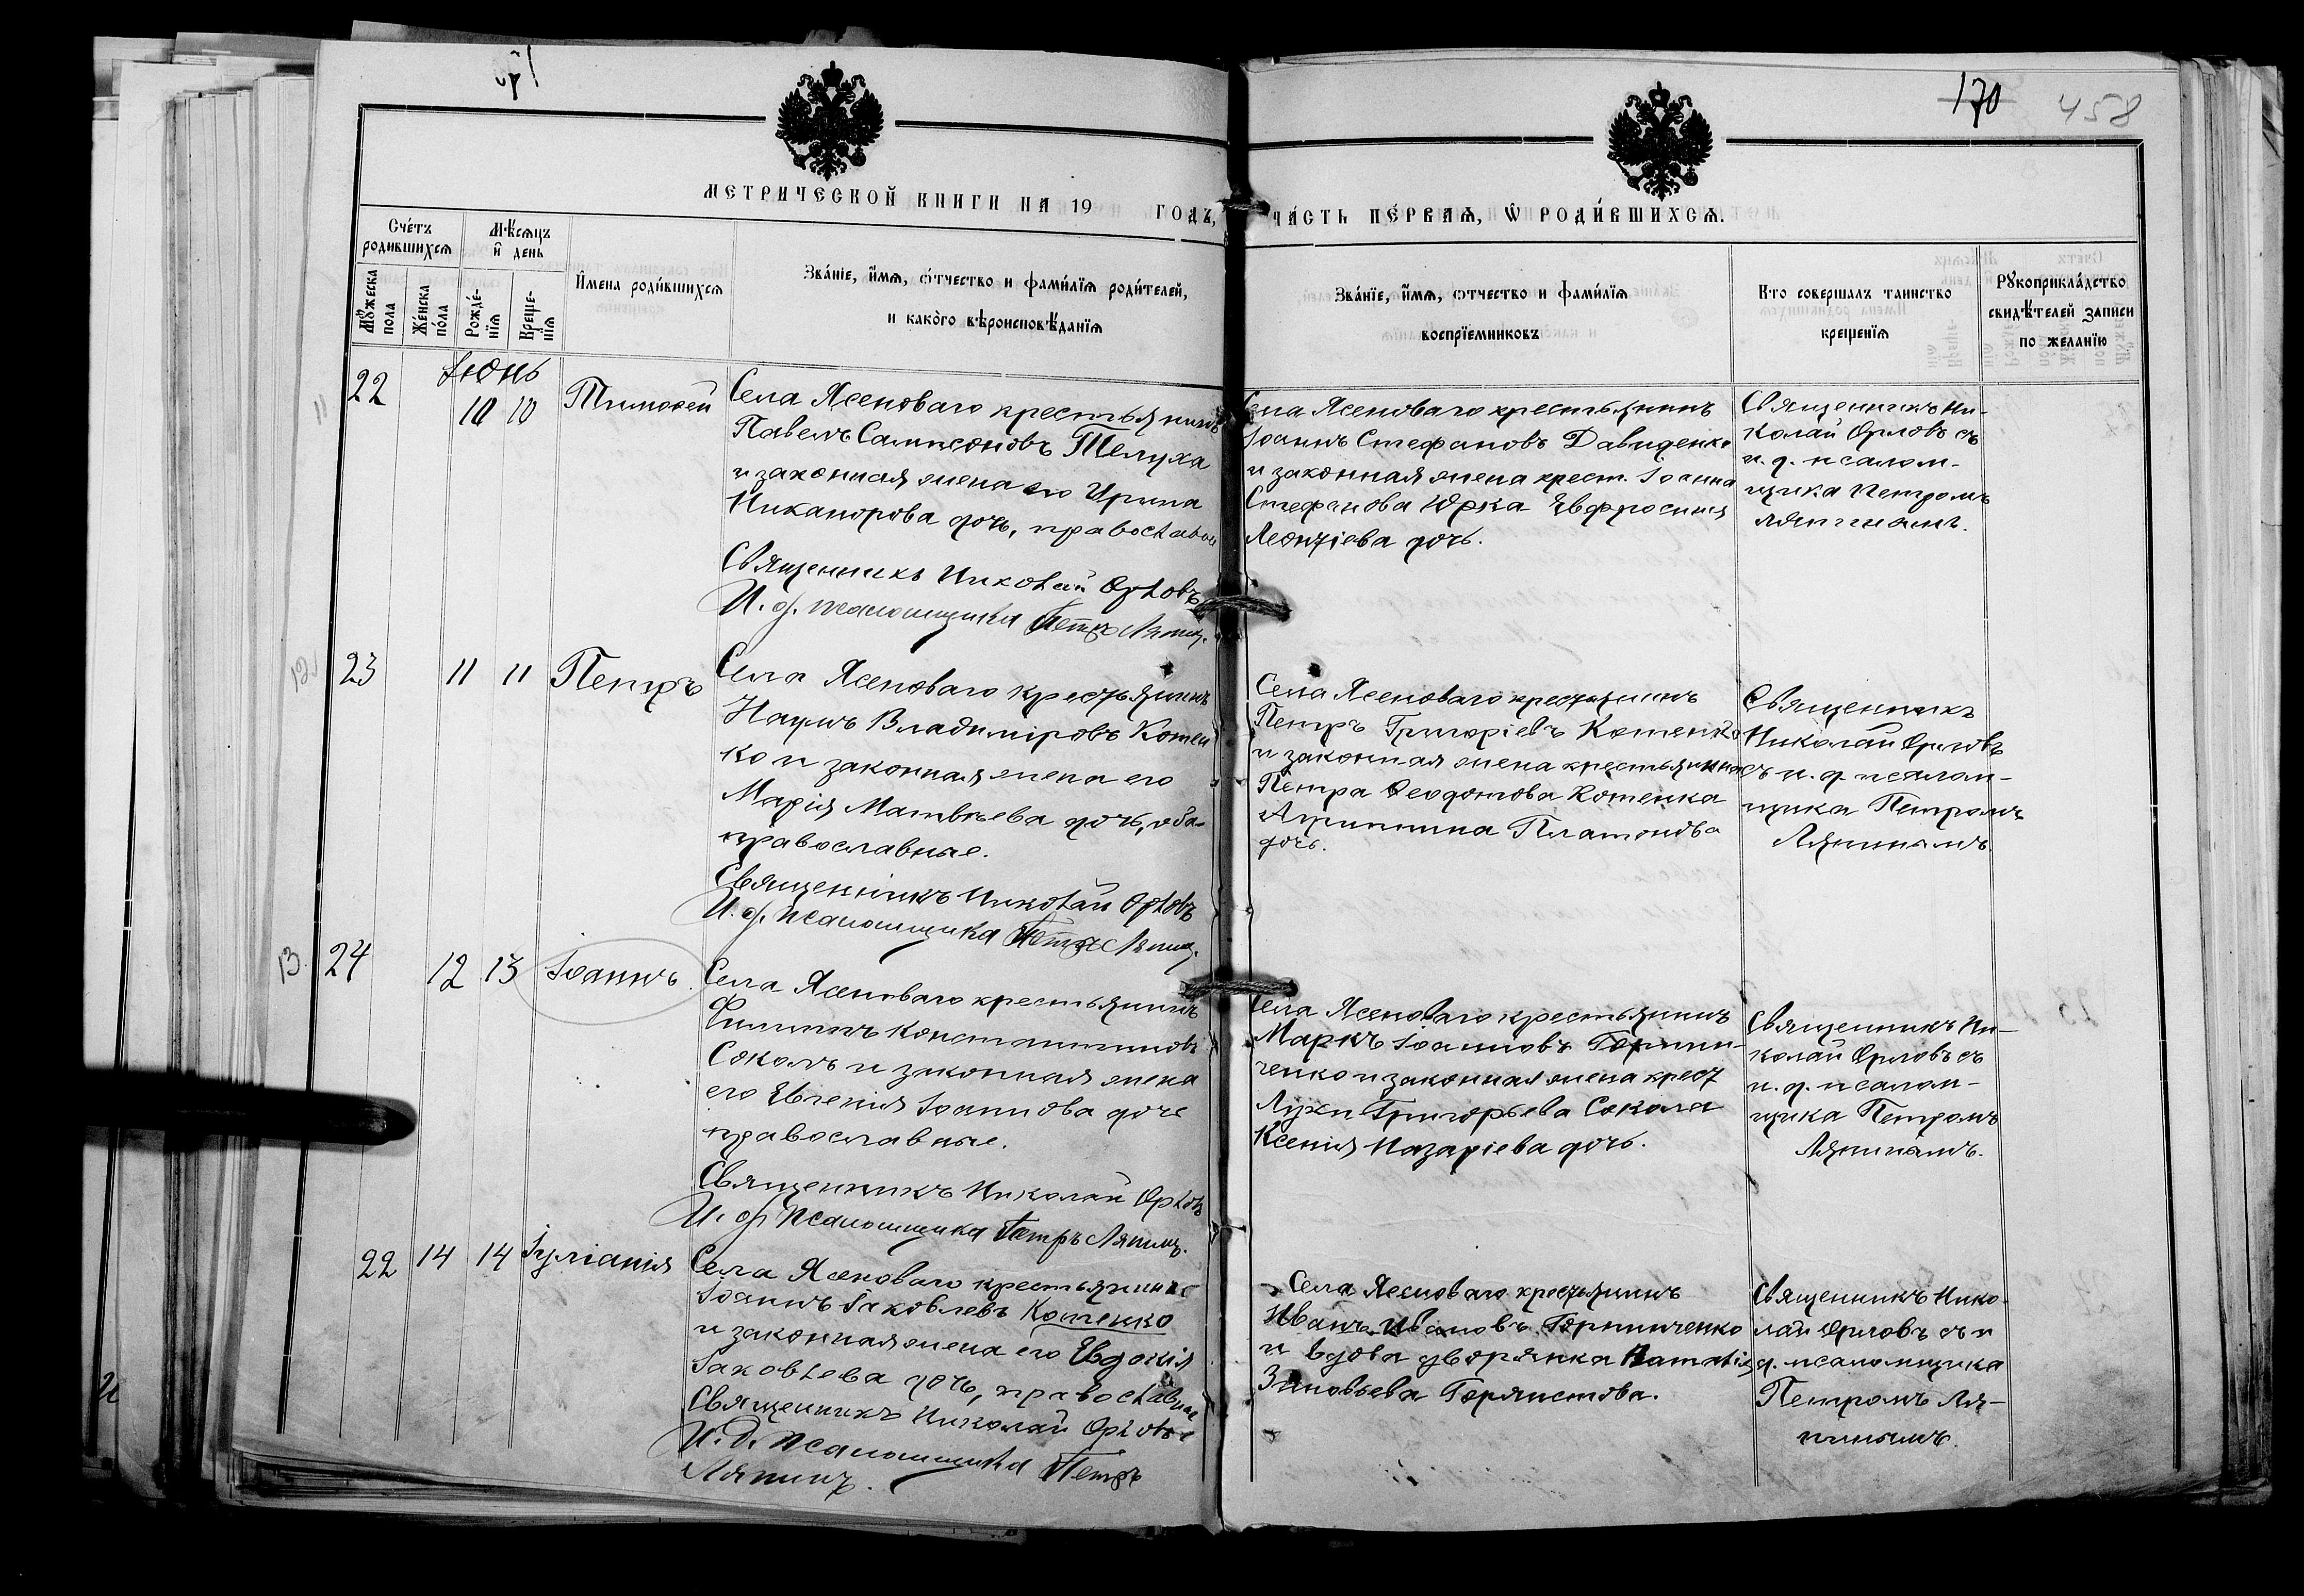 170
458
МЕТРИЧЕСКОЙ КНИГИ НА 19 ГОДЪ,
ЧАСТЬ ПЕРВАЯ, Ѡ РОДИВШИХСЯ.
Счетъ родившихся
Мѣсяцъ и день
Имена родившихся
Званіе, имя, отчество и фамилія родителей,
и какого вѣроисповѣданія
Мужеска пола
Женска пола
Рожде-
нія
Креще-
нія
Званіе, имя, отчество и фамилія
воспріемниковъ
Кто совершалъ таинство
крещенія
Рукоприкладство
свидѣтелей записи
по желанію
11
22
Іюнь
10 10
Тимофей
Села Ясеноваго крестьянинъ
Павелъ Сампсоновъ Телуха
и законная жена его Ирина
Никанорова дочь, православн
Священникъ Николай Орловъ
И. д. псаломщика Петръ Ляпин.
Села Ясеноваго крестьянинъ
Іоаннъ Стефановъ Давиденко
и законная жена крест. Іоанна
Стефанова Юрка Евфросинія
Леонтіева дочь.
Священникъ Ни-
колай Орловъ съ
и. д. псалом-
щика Петромъ
Ляпинымъ.
12
23
11 11
Петръ
Села Ясеноваго крестьянинъ
Наумъ Владиміровъ Котен
ко и законная жена его
Марія Матвѣева дочь, оба
православные.
Священникъ Николай Орловъ
И. д. псаломщика Петръ Ляпин.
Села Ясеноваго крестьянинъ
Петръ Григоріевъ Котенко
и законная жена крестьянина
Петра Феодотова Котенка
Агриппина Платонова
дочь.
Священникъ
Николай Орловъ
съ и. д. псалом-
щика Петромъ
Ляпинымъ.
13.
24
12 13
Іоаннъ.
Села Ясеноваго крестьянинъ
Филиппъ Константиновъ
Соколъ и законная жена
его Евгенія Іоаннова дочь
православные.
Священникъ Николай Орловъ
И. д. Псаломщика Петръ Ляпинъ.
Села Ясеноваго крестьянинъ
Маркъ Іоанновъ Горпин-
ченко и законная жена крест
Луки Григорьева Сокола
Ксенія Назаріева дочь.
Священникъ Ни-
колай Орловъ съ
и. д. псалом-
щика Петромъ
Ляпинымъ.
22
14 14
Іуліанія
Села Ясеноваго крестьянинъ
Іоаннъ Іаковлевъ Котенко
и законная жена его Евдокія
Іаковлева дочь, православные
Священникъ Николай Орловъ
И. д. Псаломщика Петръ
Ляпинъ.
Села Ясеноваго крестьянинъ
Иванъ Ивановъ Горпинченко
и вдова дворянка Наталія
Зиновьева
Священникъ Нико-
лай Орловъ съ и
д. псаломщика
Петромъ Ля-
пинымъ.